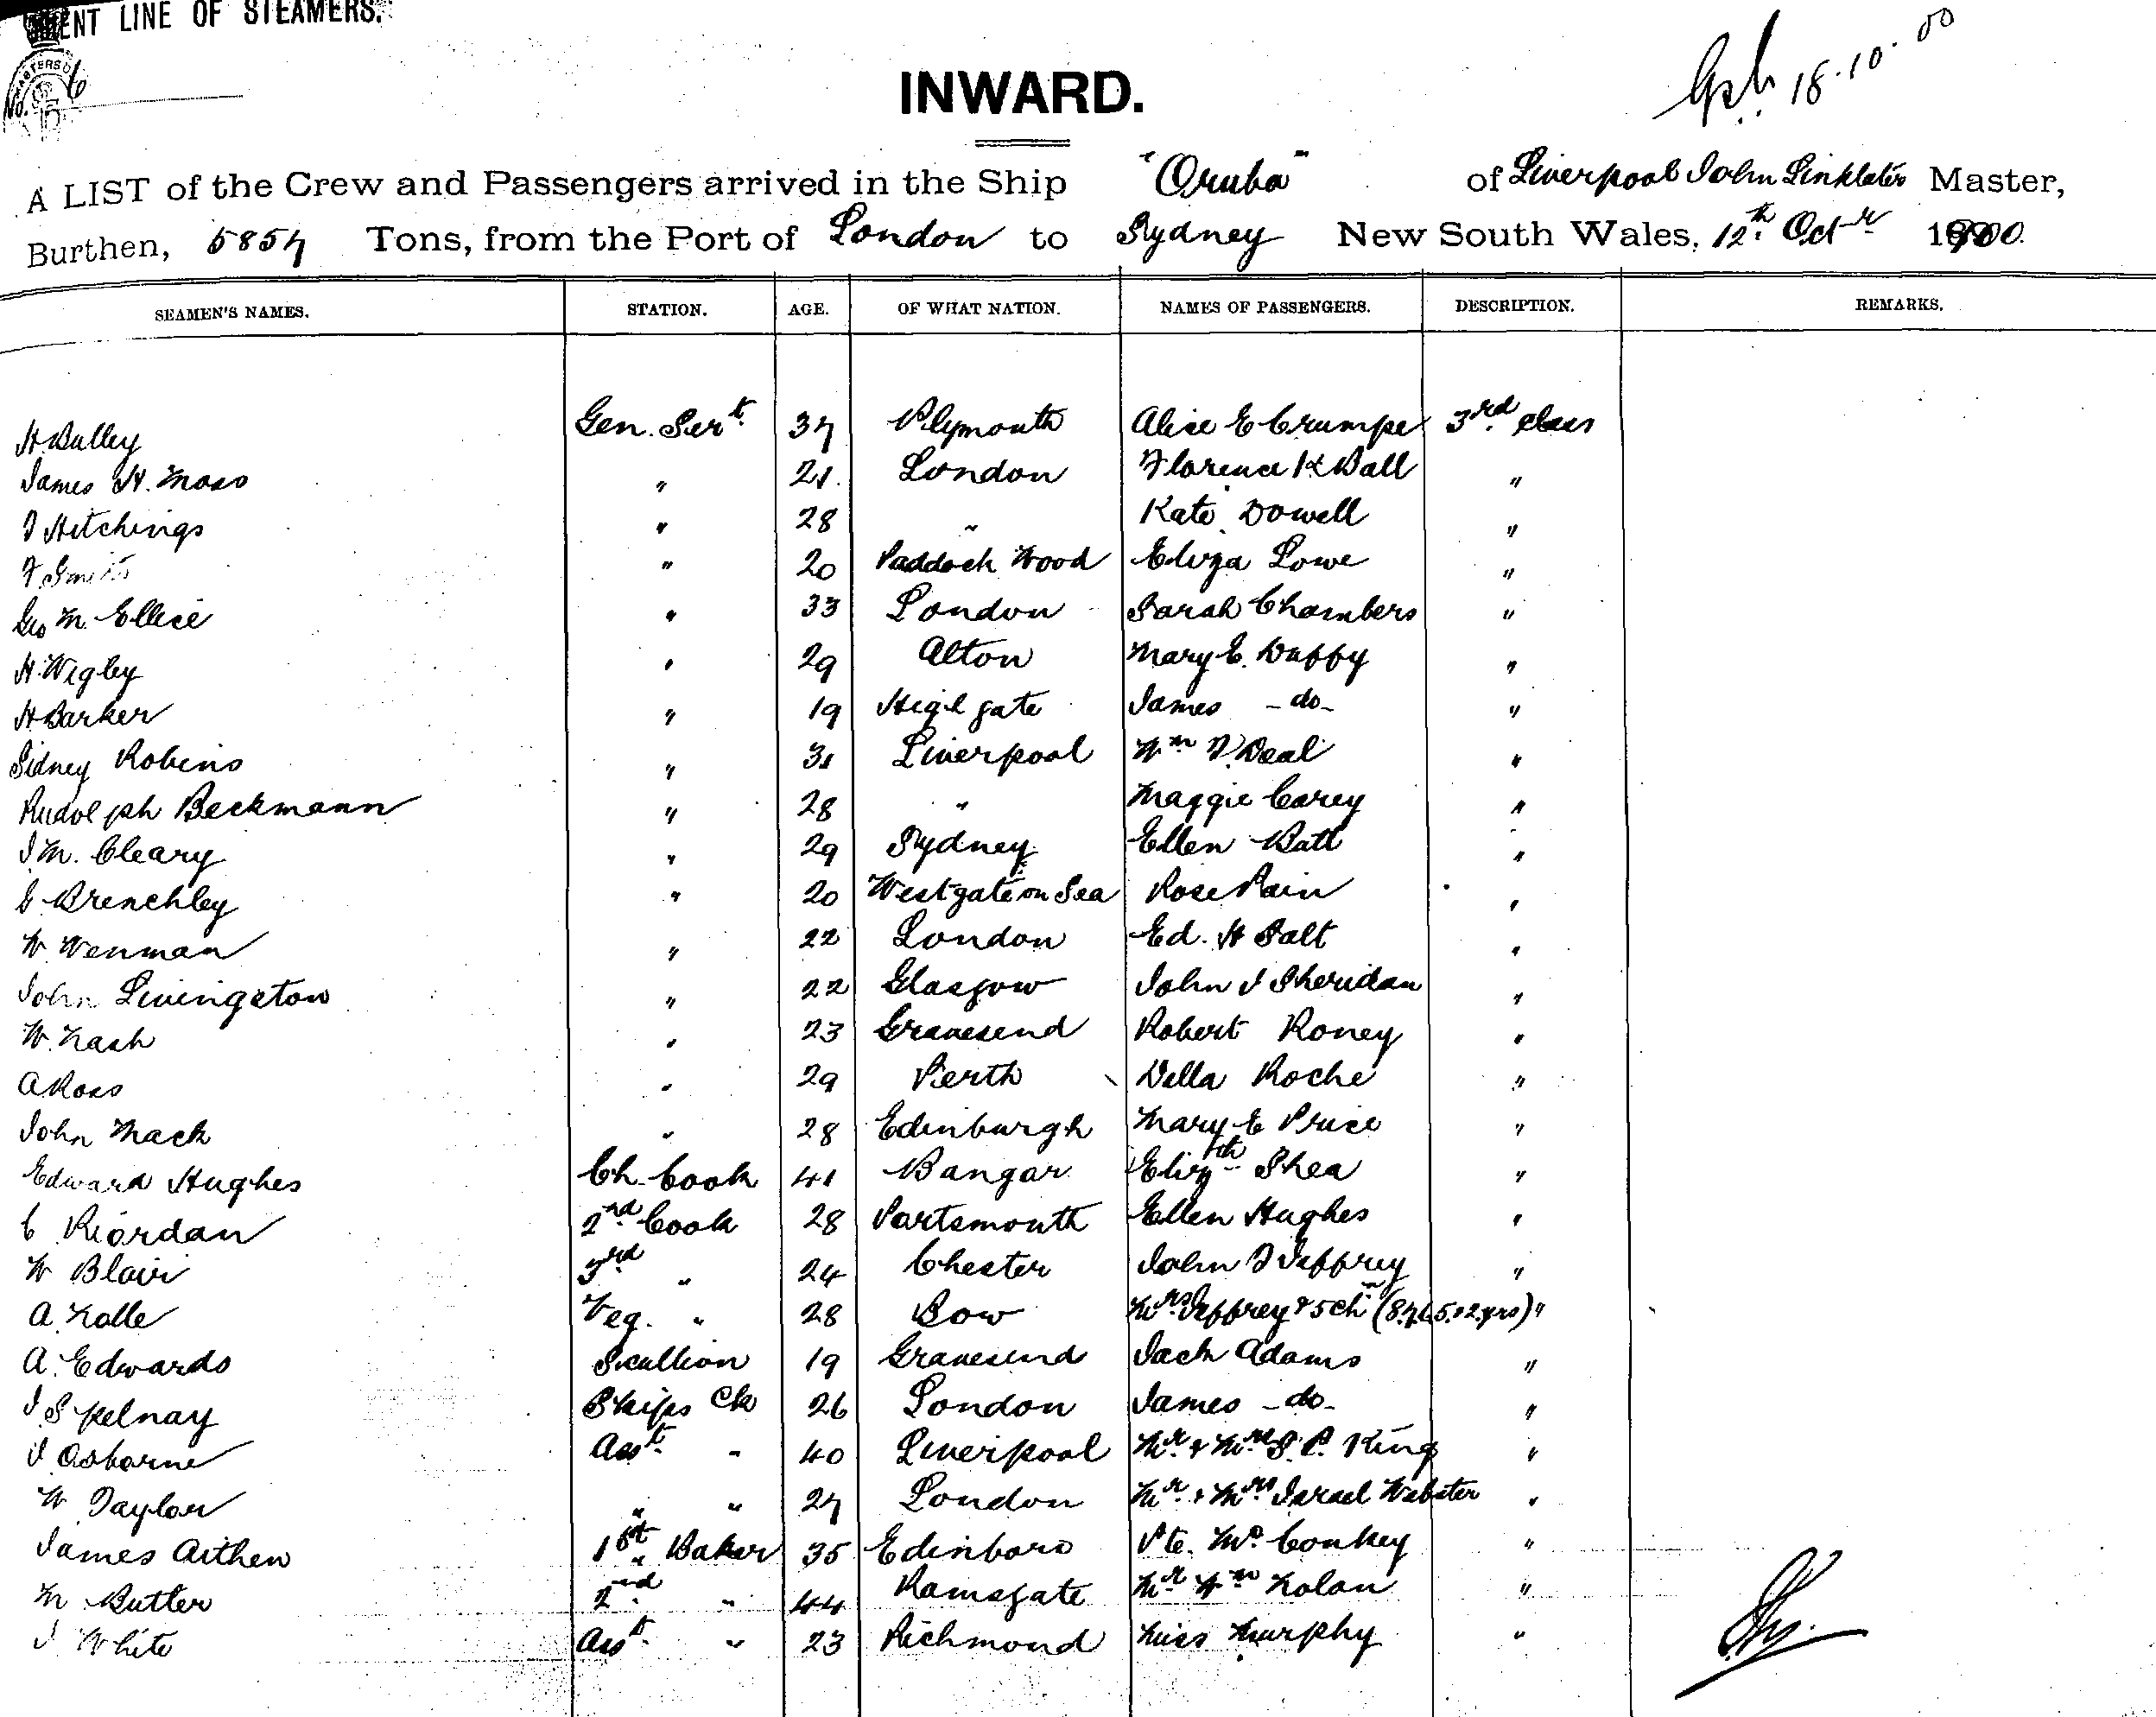 ENT LINE OF STEAMERS.
No. 6
18.10.00
INWARD.
A LIST of the Crew and Passengers arrived in the Ship "Oruba" of Liverpool John Linklater Master,
Burthen, 5857 Tons, from the Port of London to Sydney New South Wales, 12th Octr 1900.
SEAMEN'S NAMES. STATION. AGE. OF WHAT NATION. NAMES OF PASSENGERS. DESCRIPTION. REMARKS.
H Bulley Gen. Sert. 37 Plymouth Alice E Crumpe 3rd class
James H. Moss " 21 London Florence K Ball "
J Hitchings " 28 " Kate Dowell "
F Smith " 20 Paddock Wood Eliza Lowe "
Geo M. Ellice " 33 London Sarah Chambers "
H. Wigley " 29 Alton Mary E. Duffy "
H Barker " 19 Highgate James -do- "
Sidney Robins " 31 Liverpool Wm J Deal "
Rudolph Beckmann " 28 " Maggie Carey "
J M. Cleary " 29 Sydney Ellen Batt "
G Brenchley " 20 Westgate on Sea Rose Pain "
W. Wenman " 22 London Ed. H Salt "
John Livingston " 22 Glasgow John J Sheridan "
W. Nash " 23 Gravesend Robert Roney "
A Ross " 29 Perth Della Roche "
John Mack " 28 Edinburgh Mary E Price "
Edward Hughes Ch. Cook 41 Bangor Elizth Shea "
C Riordan 2nd Cook 28 Portsmouth Ellen Hughes "
W Blair 3rd " 24 Chester John J Jeffrey "
A. Nolle Veg. " 28 Bow Mrs Jeffrey & 5 chn (8.7.6.5.&2.yrs) "
A. Edwards Scullion 19 Gravesend Jack Adams "
J Spelnay Ships Ck 26 London James -do- "
J Osborne Asst. " 40 Liverpool Mr. & Mrs S. P. King "
W Taylor " " 27 London Mr. & Mrs Israel Webster "
James Aitken 1st Baker 35 Edinboro Pte. Mc Conkey "
M Butler 2nd " 44 Ramsgate Mr Wm Nolan "
J White Asst. " 23 Richmond Miss Murphy "